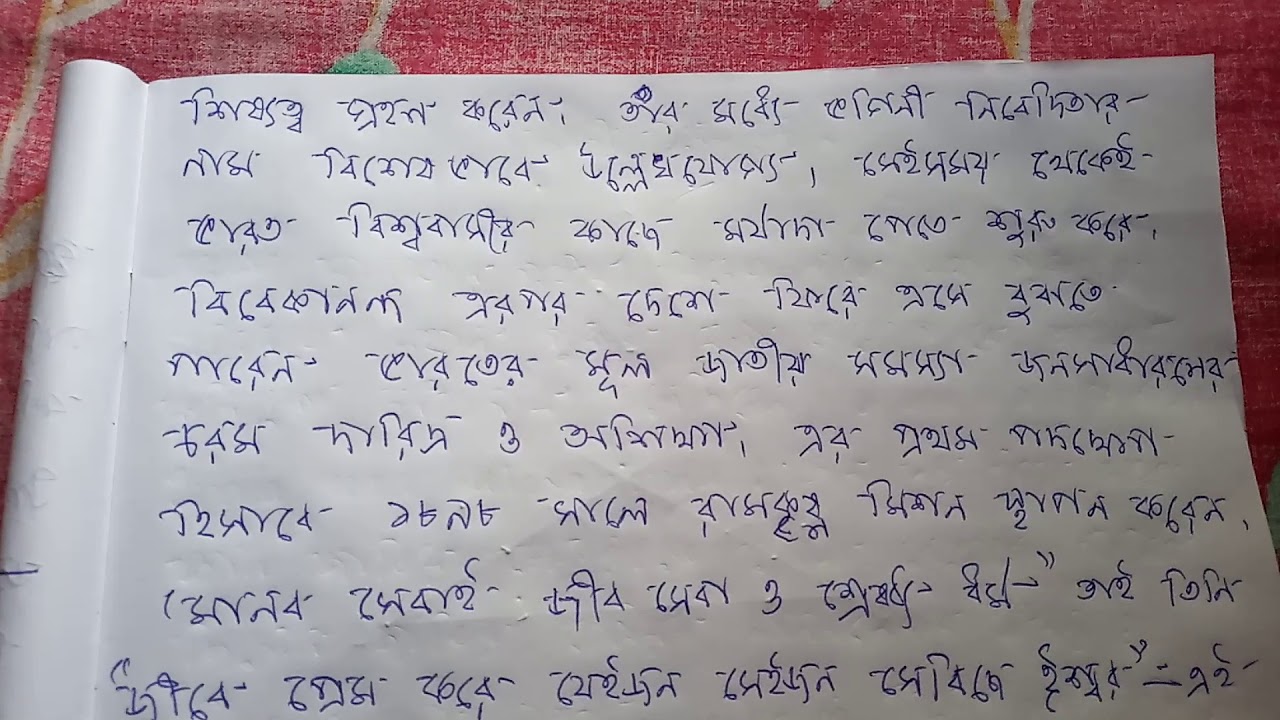 শিষ্যত্ব গ্রহণ করেন। তাঁর মধ্যে ভগিনী নিবেদিতার
নাম বিশেষভাবে উল্লেখযোগ্য। সেইসময় থেকেই
ভারত বিশ্ববাসীর কাছে মর্যাদা পেতে শুরু করে।
বিবেকানন্দ এরপর দেশে ফিরে এসে বুঝতে
পারেন ভারতের মূল জাতীয় সমস্যা জনসাধারণের
চরম দারিদ্র ও অশিক্ষা। এর প্রথম পদক্ষেপ
হিসাবে ১৮৯৮ সালে রামকৃষ্ণ মিশন স্থাপন করেন।
মানব সেবাই জীব সেবা ও ধর্ম" তাই তিনি
"জীবে প্রেম করে যেইজন সেইজন সেবিছে ঈশ্বর" – এই